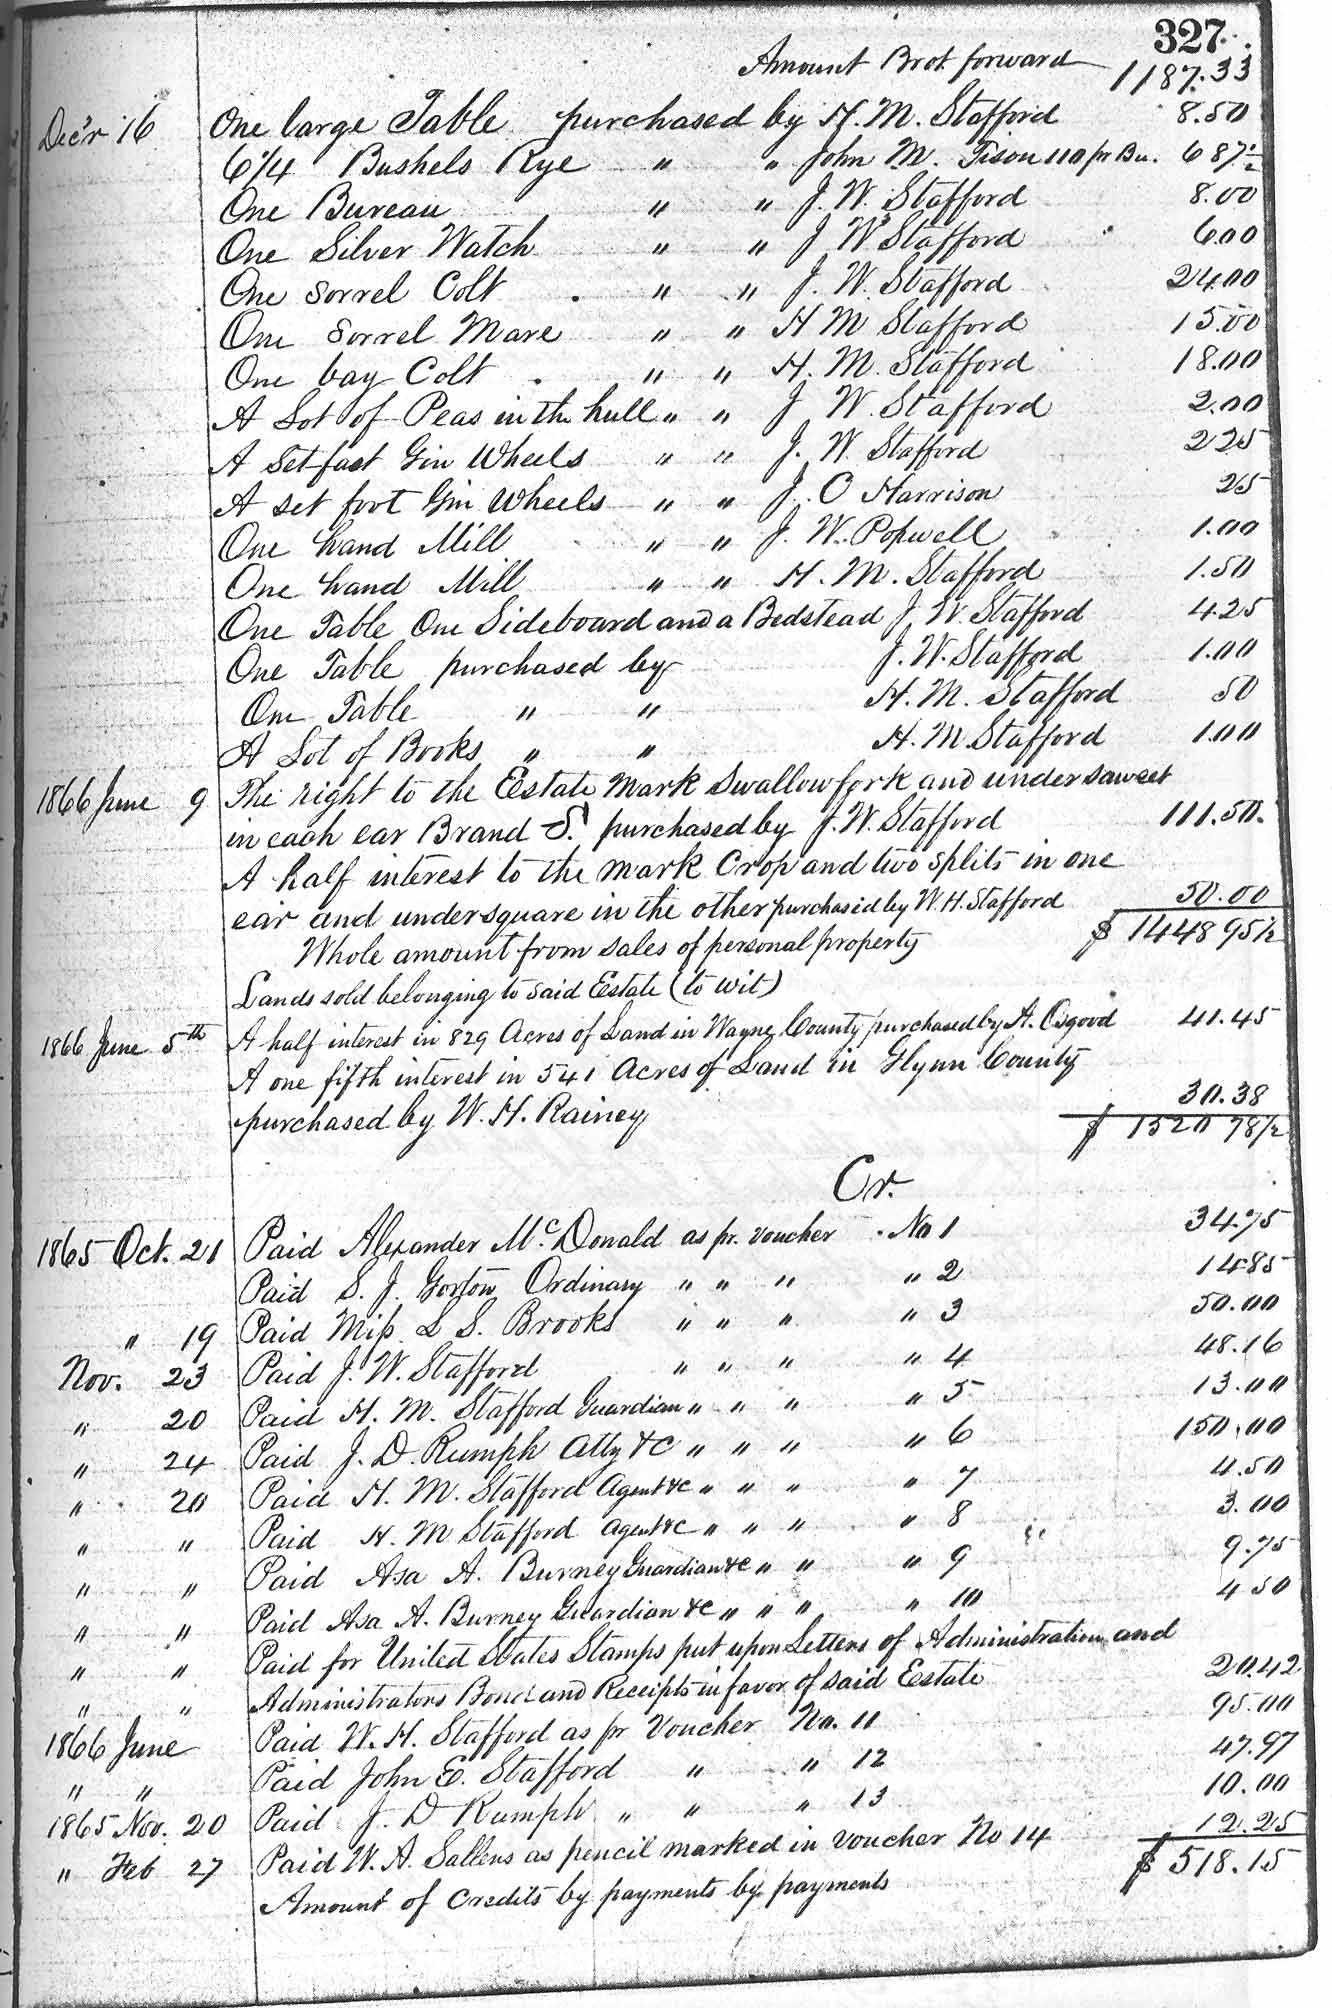 327
Amount Brot forward 1187.33
Dec'r 16 One large Table purchased by H. M. Stafford 8.50
6 1/4 Bushels Rye " " John M. Tison 110 pr Bu. 6 87 1/2
One Bureau " " J. W. Stafford 8.00
One Silver Watch " " J W Stafford 6.00
One Sorrel Colt " " J. W. Stafford 24.00
One Sorrel Mare " " H M Stafford 15.00
One bay Colt " " H. M. Stafford 18.00
A Lot of Peas in the hull " " J W. Stafford 2.00
A Set fast Gin Wheels " " J. W. Stafford 2 25
A set foot Gin Wheels " " J. C Harrison 25
One hand Mill " " J. W. Popwell 1.00
One hand Mill " " H. M. Stafford 1.50
One Table One Sideboard and a Bedstead J. W. Stafford 4.25
One Table purchased by J. W. Stafford 1.00
One Table " " H. M. Stafford 50
A Lot of Books " " H. M. Stafford 1.00
1866 June 9 The right to the Estate Mark Swallowfork and under sawset
in each ear Brand S. purchased by J. W. Stafford 111.50.
A half interest to the mark Crop and two splits in one
ear and undersquare in the other purchased by W. H. Stafford 50.00
Whole amount from sales of personal property $ 1448 95 1/2
Lands sold belonging to said Estate (to wit)
1866 June 5th A half interest in 829 Acres of Land in Wayne County purchased by A. Osgood 41.45
A one fifth interest in 541 Acres of Land in Glynn County
purchased by W. H. Rainey 30.38
$ 1520 78 1/2
Cr.
1865 Oct. 21 Paid Alexander McDonald as pr. voucher No 1 34.75
Paid S. J. Gorton Ordinary " " " " 2 14.85
" 19 Paid Miss L S. Brooks " " " " 3 50.00
Nov. 23 Paid J. W. Stafford " " " " 4 48.16
" 20 Paid H. M. Stafford Guardian " " " " 5 13.00
" 24 Paid J. D. Rumph Atty &c " " " " 6 150.00
" 20 Paid H. M. Stafford Agent &c " " " " 7 4.50
" " Paid H. M Stafford Agent &c " " " " 8 3.00
" " Paid Asa A. Burney Guardian &c " " " 9 9.75
" " Paid Asa A. Burney Guardian &c " " " " 10 4 50
" " Paid for United States Stamps put upon Letters of Administration and
" " Administrators Bond and Receipts in favor of said Estate 20.42
1866 June Paid W. H. Stafford as pr Voucher No. 11 95.00
" " Paid John E. Stafford " " 12 47.97
1865 Nov. 20 Paid J. D Rumph " " " 13 10.00
" Feb 27 Paid W. A. Sallens as pencil marked in voucher No 14 12.25
Amount of Credits by payments by payments $ 518.15